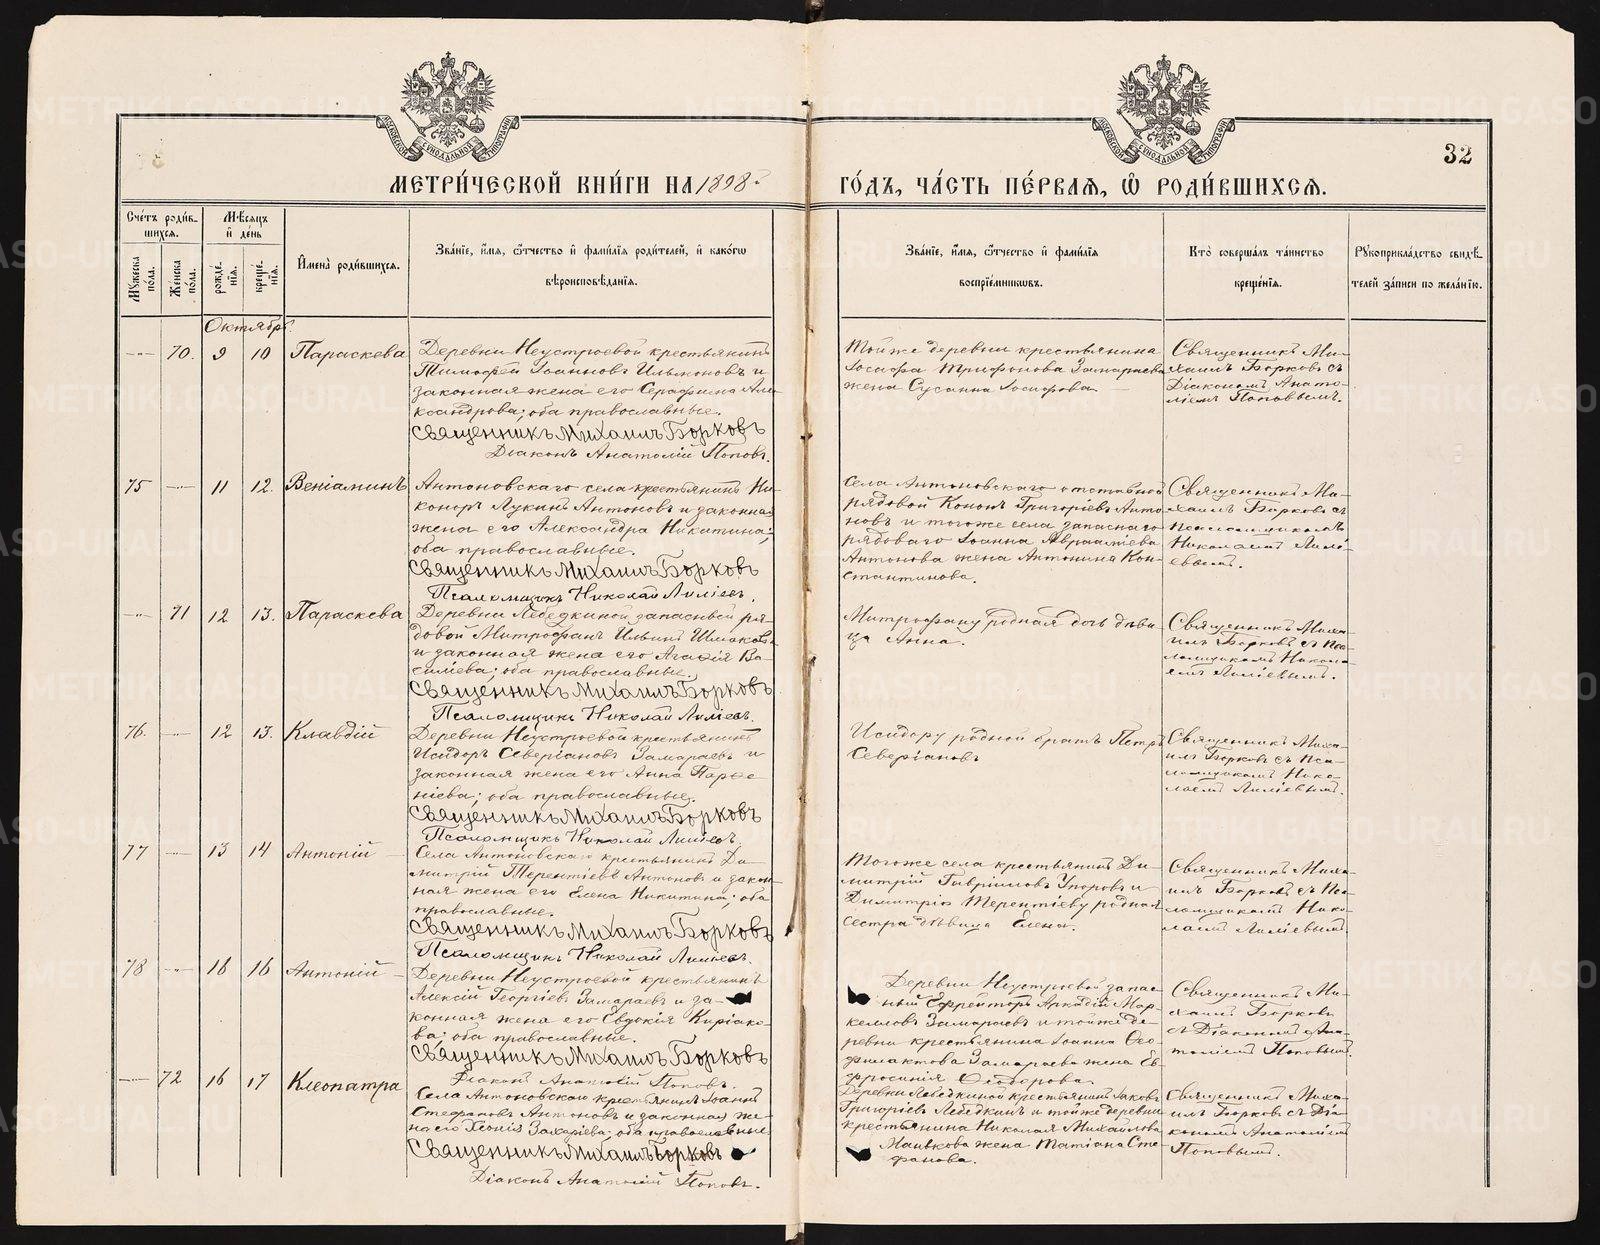 32
МЕТРИ́ЧЕСКОЙ КНИ́ГИ НА 1898 г.
ГО́ДЪ, ЧА́СТЬ ПЕ́РВАѦ, Ѽ РОДИ́ВШИХСѦ.
Сче́тъ роди́в-
шихсѧ.
Мꙋ́жеска по́ла.
Же́нска по́ла.
Мѣ́сѧцъ и҆ де́нь
рожде́-
нїѧ.
креще́-
нїѧ.
И҆мена̀ роди́вшихсѧ.
Зва́нїе, и҆́мѧ, ѻ҆́тчество и҆ фами́лїѧ роди́телей, и҆ како́гѡ
вѣроисповѣ́данїѧ.
Зва́нїе, и҆́мѧ, ѻ҆́тчество и҆ фами́лїѧ
воспрїе́мникѡвъ.
Кто̀ соверша́лъ та́инство
креще́нїѧ.
Рꙋкоприкла́дство свидѣ́-
телей за́писи по жела́нїю.
Октябрь.
70. 9 10 Параскева
Деревни Неустроевой крестьянинъ
Тимофей Іоанновъ Ильконовъ и
законная жена его Серафима Але-
ксандрова; оба православные.
Священникъ Михаилъ Борковъ
Діаконъ Анатолій Поповъ.
Тойже деревни крестьянина
Іосафа Трифонова Замараева
жена Сусанна Іосифова.
Священникъ Ми-
хаилъ Борковъ съ
Діакономъ Анато-
ліемъ Поповымъ.
75 11 12. Веніаминъ
Антоновскаго села крестьянинъ Ни-
коноръ Лукинъ Антоновъ и законная
жена его Александра Никитина;
оба православные.
Священникъ Михаилъ Борковъ
Псаломщикъ Николай Лиліевъ.
Села Антоновскаго отставной
рядовой Кононъ Григоріевъ Анто-
новъ и тогоже села запаснаго
рядоваго Іоанна Авраміева
Антонова жена Антонина Кон-
стантинова.
Священникъ Ми-
хаилъ Борковъ съ
Псаломщикомъ
Николаемъ Лилі-
евымъ.
71 12 13. Параскева
Деревни Лебедкиной запасной ря-
довой Митрофанъ Ильинъ Шмаковъ
и законная жена его Агафія Ва-
силіева; оба православные.
Священникъ Михаилъ Борковъ
Псаломщикъ Николай Лиліевъ.
Митрофану родная дочь дѣви-
ца Анна.
Священникъ Миха-
илъ Борковъ съ Пса-
ломщикомъ Никола-
емъ Лиліевымъ.
76. 12 13. Клавдій
Деревни Неустроевой крестьянинъ
Исидоръ Северіановъ Замараевъ и
законная жена его Анна Парѳе-
ніева; оба православные.
Священникъ Михаилъ Борковъ
Псаломщикъ Николай Лиліевъ.
Исидору родной братъ Петръ
Северіановъ
Священникъ Миха-
илъ Борковъ съ Пса-
ломщикомъ Нико-
лаемъ Лиліевымъ.
77 13 14 Антоній
Села Антоновскаго крестьянинъ Ди-
митрій Терентіевъ Антоновъ и закон-
ная жена его Елена Никитина; оба
православные.
Священникъ Михаилъ Борковъ
Псаломщикъ Николай Лиліевъ.
Тогоже села крестьянинъ Ди-
митрій Гавріиловъ Упоровъ и
Димитрію Терентіеву родная
сестра дѣвица Елена.
Священникъ Миха-
илъ Борковъ съ Пса-
ломщикомъ Нико-
лаемъ Лиліевымъ
78 16 16 Антоній
Деревни Неустроевой крестьянинъ
Алексій Георгіевъ Замараевъ и за-
конная жена его Евдокія Киріако-
ва; оба православные.
Священникъ Михаилъ Борковъ
Діаконъ Анатолій Поповъ.
Деревни Неустроевой запас-
ный Ефрейторъ Аркадій Мар-
келловъ Замараевъ и тойже де-
ревни крестьянина Іоанна Ѳео-
филактова Замараева жена Ев-
фросинія Ѳеодорова.
Священникъ Ми-
хаилъ Борковъ
съ Діакономъ Ана-
толіемъ Поповымъ.
72 16 17 Клеопатра
Села Антоновскаго крестьянинъ Іоаннъ
Стефановъ Антоновъ и законная же-
на его Хіонія Захаріева; оба православные
Священникъ Михаилъ Борковъ
Діаконъ Анатолій Поповъ.
Деревни Лебедкиной крестьянинъ Іаковъ
Григоріевъ Лебедкинъ и тойже деревни
крестьянина Николая Михайлова
жена Татіана Сте-
фанова.
Священникъ Миха-
илъ Борковъ съ Діа-
кономъ Анатоліемъ
Поповымъ.